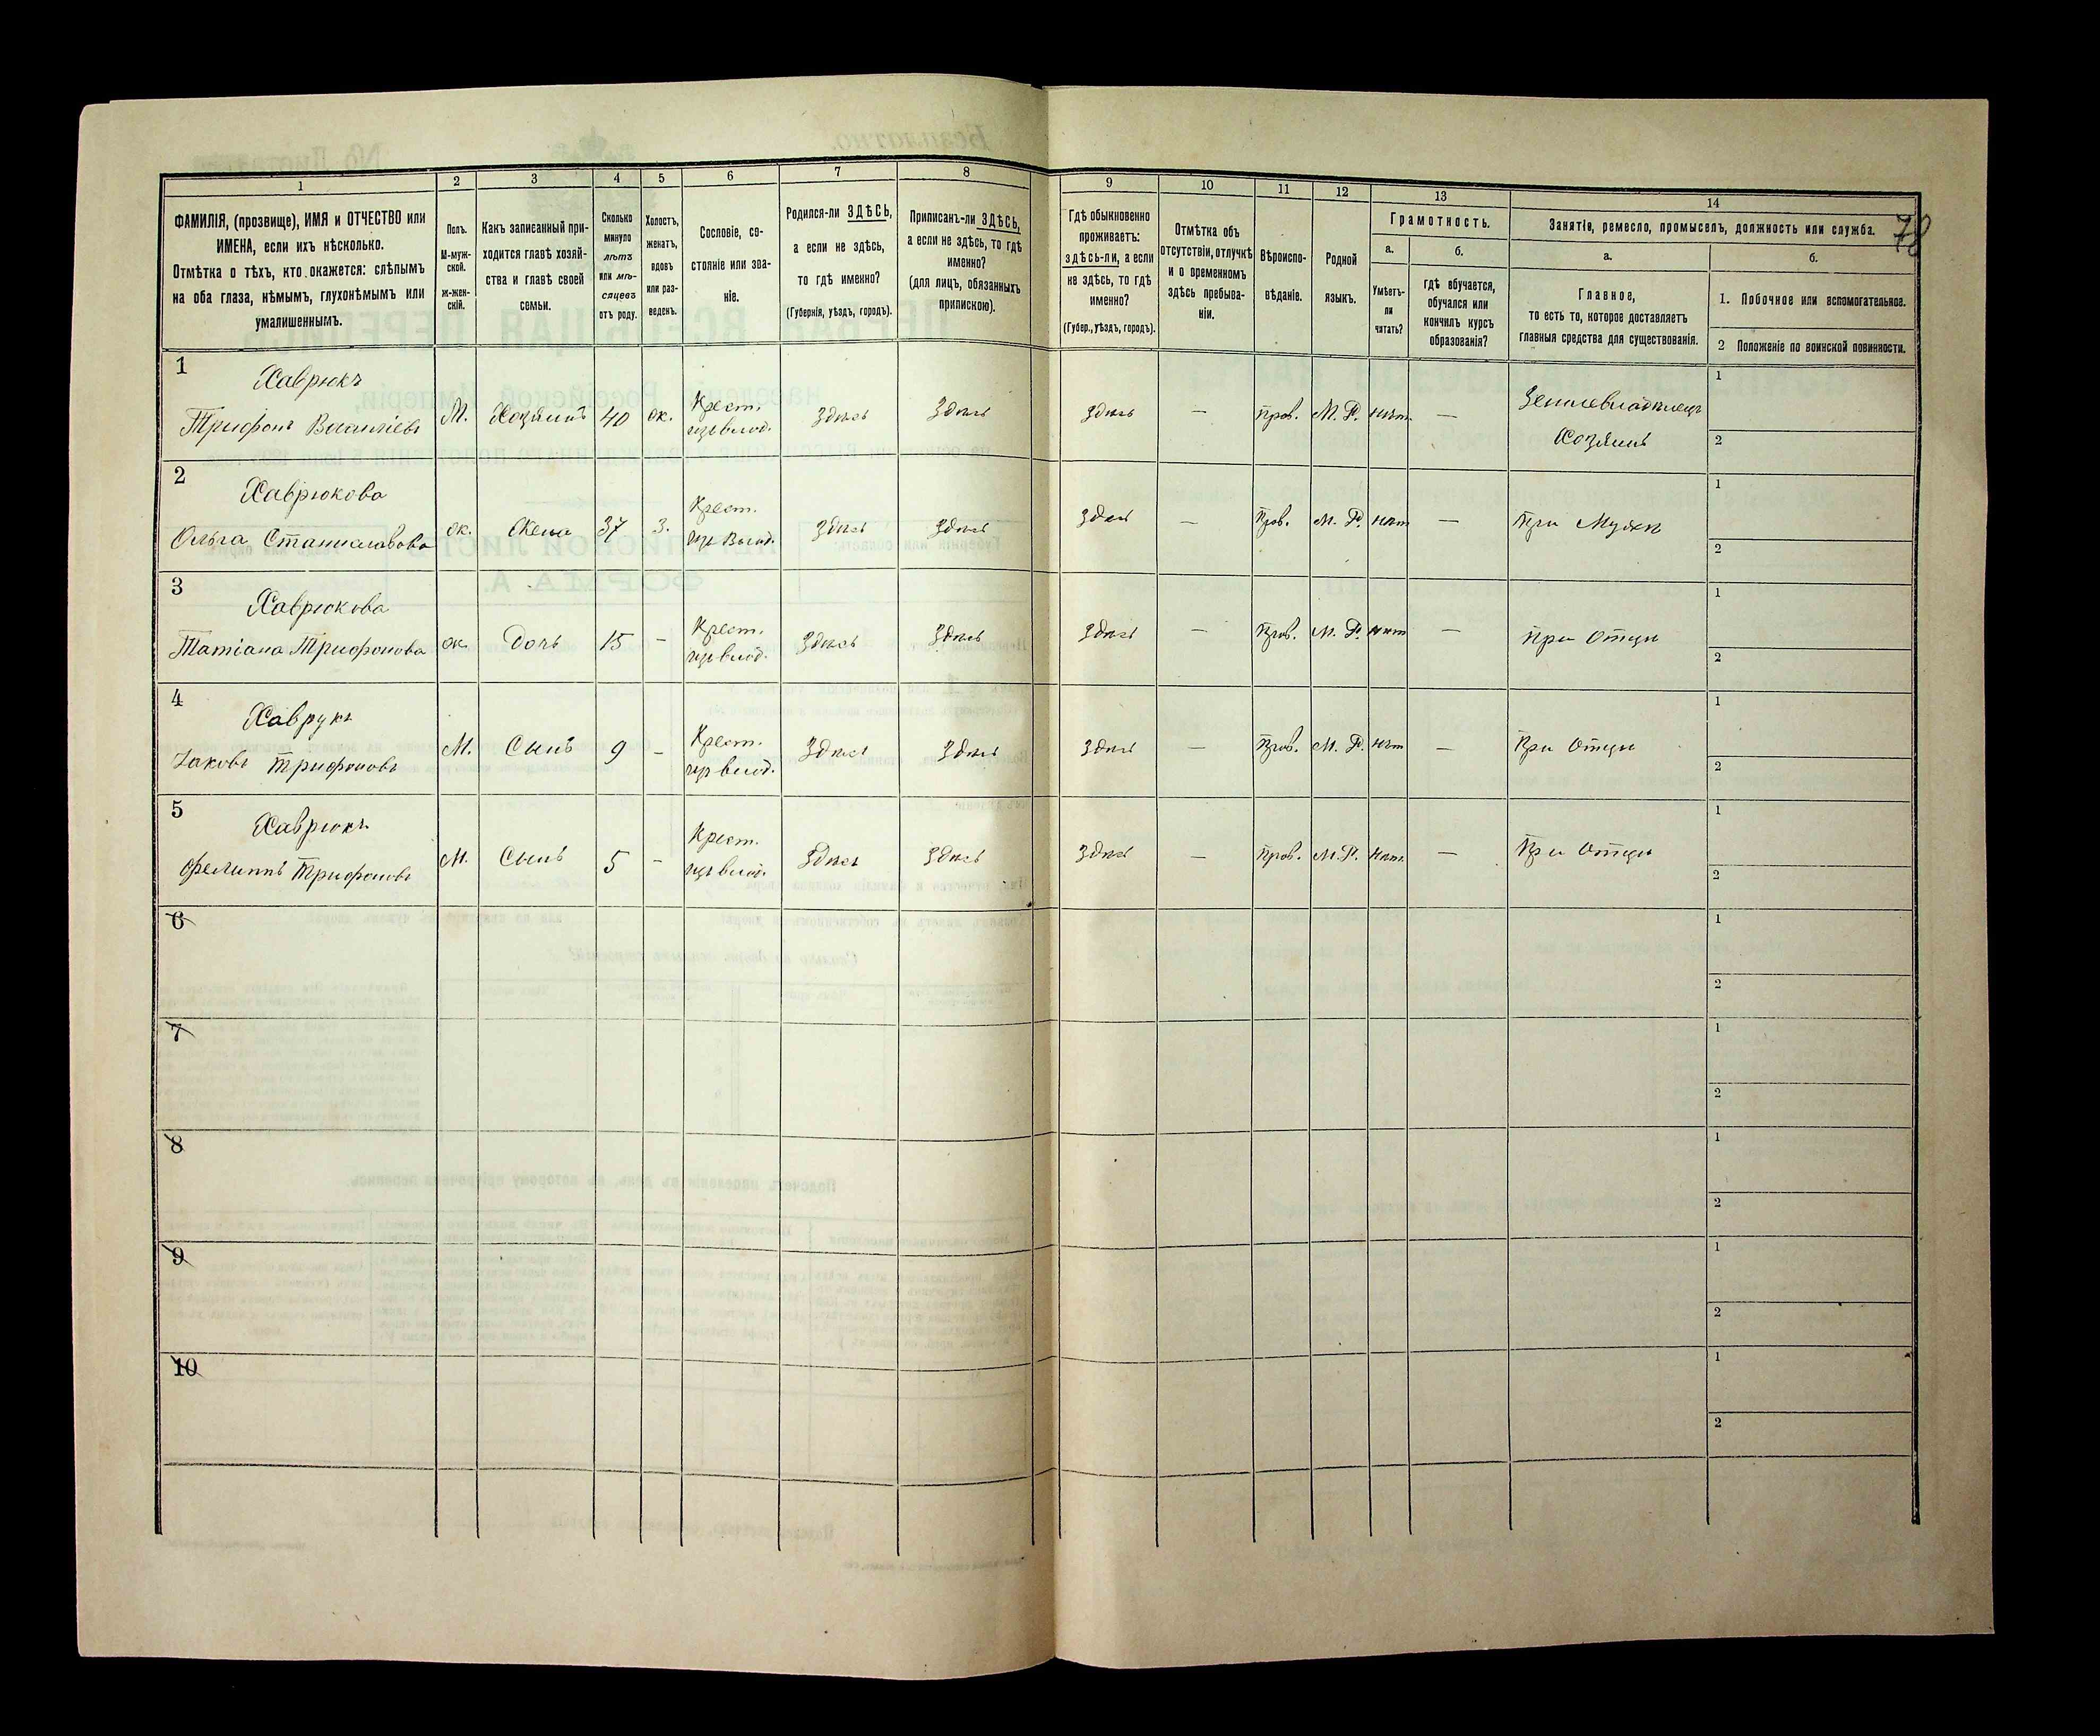 78
1 2 3 4 5 6 7 8 9 10 11 12 13 14
ФАМИЛІЯ, (прозвище), ИМЯ и ОТЧЕСТВО или
ИМЕНА, если ихъ нѣсколько.
Отмѣтка о тѣхъ, кто окажется: слѣпымъ
на оба глаза, нѣмымъ, глухонѣмымъ или
умалишеннымъ.
Полъ.
М-муж-
ской.
ж-жен-
скій.
Какъ записанный при-
ходится главѣ хозяй-
ства и главѣ своей
семьи.
Сколько
минуло
лѣтъ
или мѣ-
сяцевъ
отъ роду.
Холостъ,
женатъ,
вдовъ
или раз-
веденъ.
Сословіе, со-
стояніе или зва-
ніе.
Родился-ли ЗДѢСЬ,
а если не здѣсь,
то гдѣ именно?
(Губернія, уѣздъ, городъ).
Приписанъ-ли ЗДѢСЬ,
а если не здѣсь, то гдѣ
именно?
(для лицъ, обязанныхъ
припискою).
Гдѣ обыкновенно
проживаетъ:
здѣсь-ли, а если
не здѣсь, то гдѣ
именно?
(Губер., уѣздъ, городъ).
Отмѣтка объ
отсутствіи, отлучкѣ
и о временномъ
здѣсь пребыва-
ніи.
Вѣроиспо-
вѣданіе.
Родной
языкъ.
Грамотность.
а.
Умѣетъ-
ли
читать?
б.
гдѣ обучается,
обучался или
кончилъ курсъ
образованія?
Занятіе, ремесло, промыселъ, должность или служба.
а.
Главное,
то есть то, которое доставляетъ
главныя средства для существованія.
б.
1. Побочное или вспомогательное.
2 Положеніе по воинской повинности.
1
Хаврюкъ
Трифонъ Василіевъ
М. Хозяинъ 40 ж.
Крест.
изъ влад.
Здѣсь Здѣсь Здѣсь — Прав. М. Р. нѣт —
Землевладѣлец
Хозяинъ
1
2
2
Хаврюкова
Ольга Станиславова
ж. Жена 37 з.
Крест.
изъ Влад.
Здѣсь Здѣсь Здѣсь — Прав. М. Р. нѣт —
При Мужѣ
1
2
3
Хаврюкова
Татіана Трифонова
ж. Дочь 15 —
Крест.
изъ влад.
Здѣсь Здѣсь Здѣсь — Прав. М. Р. нѣт —
При Отцѣ
1
2
4
Хаврукъ
Іаковъ Трифоновъ
М. Сынъ 9 —
Крест.
изъ влад.
Здѣсь Здѣсь Здѣсь — Прав. М. Р. нѣт —
При Отцѣ
1
2
5
Хаврюкъ
Филиппъ Трифоновъ
М. Сынъ 5 —
Крест.
изъ влад.
Здѣсь Здѣсь Здѣсь — Прав. М. Р. нѣт —
При Отцѣ
1
2
6
1
2
7
1
2
8
1
2
9
1
2
10
1
2